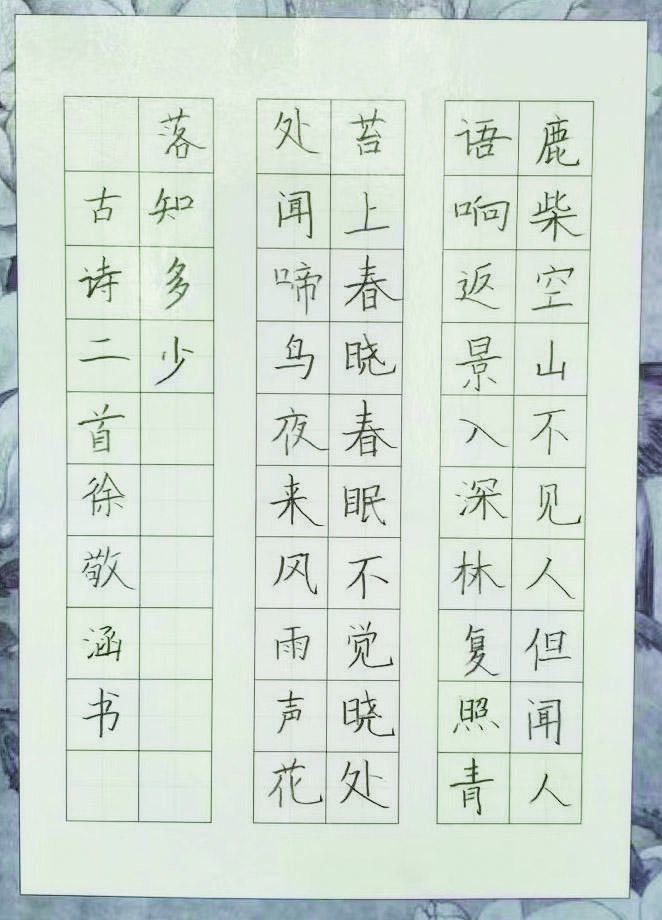 鹿柴空山不见人但闻人
语响返景入深林复照青
苔上春晓春眠不觉晓处
处闻啼鸟夜来风雨声花
落知多少
古诗二首徐敬涵书